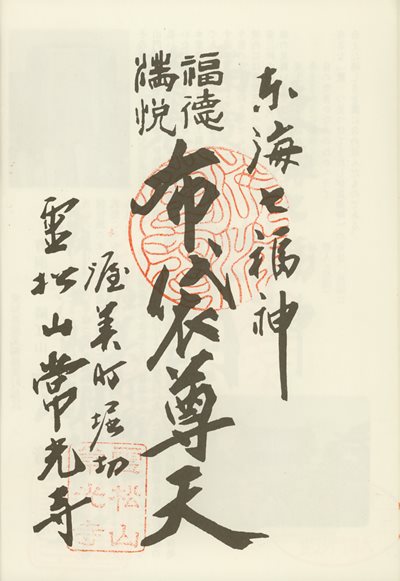 东海七福神
福德
満悦
布袋尊天
渥美町堀切
霊松山常光寺
霊松山
常光寺